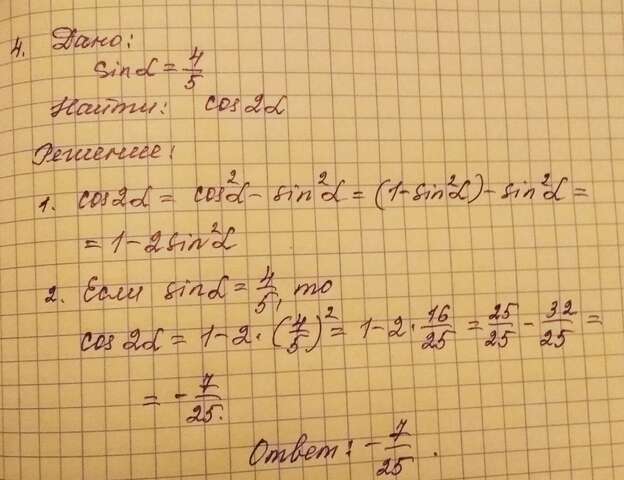 4. Дано:
sinα = 4/5
Найти: cos2α
Решение:
1. cos2α = cos²α - sin²α = (1-sin²α) - sin²α =
= 1-2sin²α
2. Если sinα = 4/5, то
cos2α = 1-2·(4/5)² = 1-2·16/25 = 25/25 - 32/25 =
= -7/25.
Ответ: -7/25.